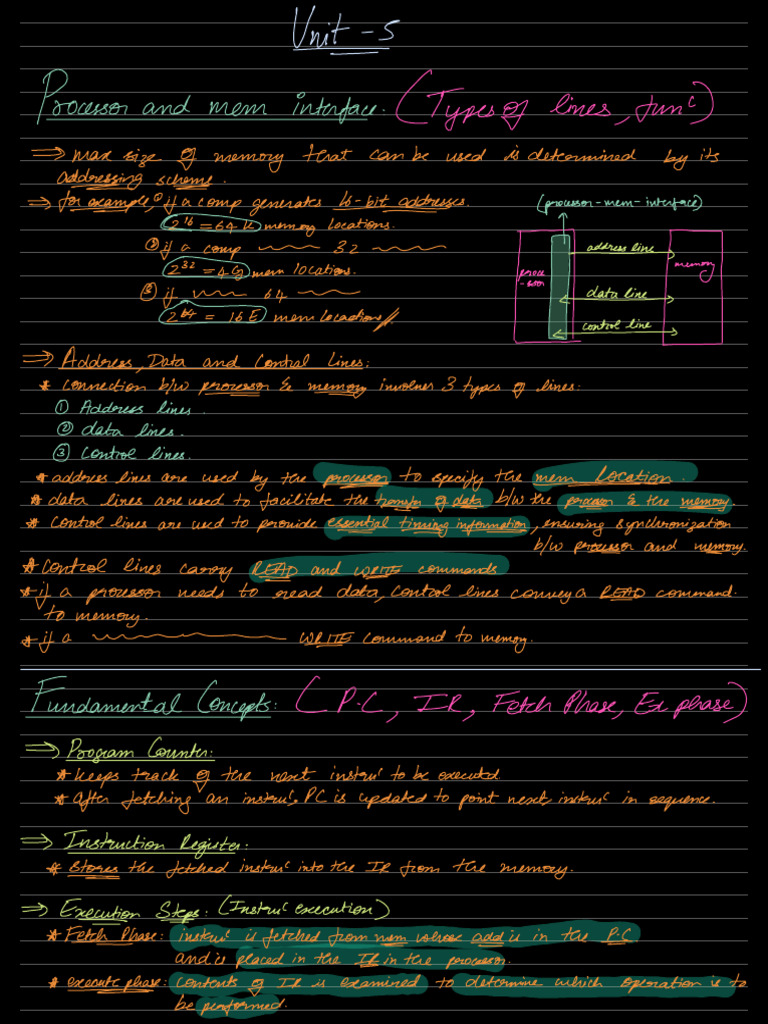 Unit - 5
Processor and mem interface: (Types of lines, func)
⇒ max size of memory that can be used is determined by its
addressing scheme.
⇒ for example, ① if a comp generates 16-bit addresses.
2^16 = 64 K memory locations.
② if a comp ~~~ 32 ~~~
2^32 = 4G mem locations.
③ if ~~~ 64 ~~~
2^64 = 16E mem locations //.
(processor-mem-interface)
proce
-ssor
address line
memory
data line
control line
⇒ Address, Data and Control Lines:
* connection b/w processor & memory involves 3 types of lines:
① Address lines.
② data lines.
③ Control lines.
* address lines are used by the processor to specify the mem location.
* data lines are used to facilitate the transfer of data b/w the processor & the memory.
* Control lines are used to provide essential timing information, ensuring synchronization
b/w processor and memory.
* Control lines carry READ and WRITE commands
* if a processor needs to read data, control lines convey a READ command.
to memory.
* if a ~~~ WRITE command to memory.
Fundamental Concepts: (P.C, IR, Fetch Phase, Ex phase)
⇒ Program Counter:
* keeps track of the next instruc to be executed
* After fetching an instruc. PC is updated to point next instruc in sequence.
⇒ Instruction Register:
* Stores the fetched instruc into the IR from the memory.
⇒ Execution Steps: (Instruc execution)
* Fetch Phase: instruc is fetched from mem whose add is in the P.C
and is placed in the IR in the processor.
* execute phase: Contents of IR is examined to determine which operation is to
be performed.